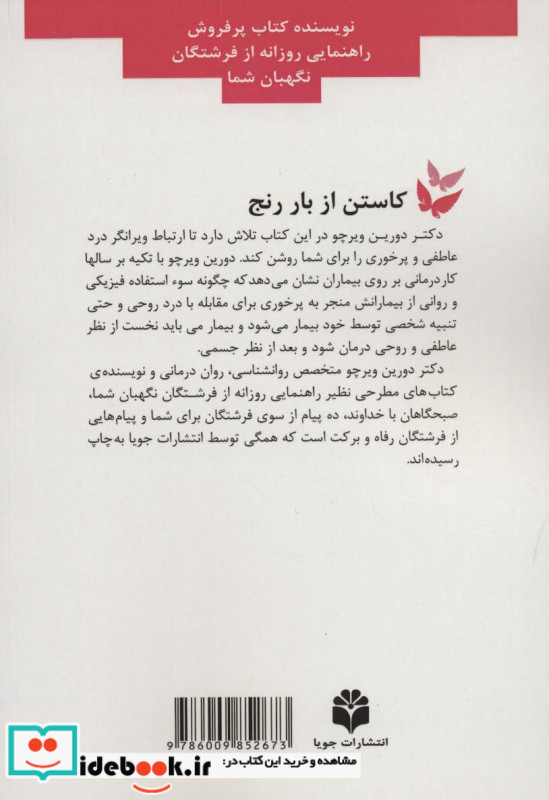 نویسنده کتاب پرفروش
راهنمایی روزانه از فرشتگان
نگهبان شما
کاستن از بار رنج
دکتر دورین ویرچو در این کتاب تلاش دارد تا ارتباط ویرانگر درد
عاطفی و پرخوری را برای شما روشن کند. دورین ویرچو با تکیه بر سالها
کار درمانی بر روی بیماران نشان می‌دهد که چگونه سوء استفاده فیزیکی
و روانی از بیمارانش منجر به پرخوری برای مقابله با درد روحی و حتی
تنبیه شخصی توسط خود بیمار می‌شود و بیمار می باید نخست از نظر
عاطفی و روحی درمان شود و بعد از نظر جسمی.
دکتر دورین ویرچو متخصص روانشناسی، روان درمانی و نویسنده‌ی
کتاب‌های مطرحی نظیر راهنمایی روزانه از فرشتگان نگهبان شما،
صبحگاهان با خداوند، ده پیام از سوی فرشتگان برای شما و پیام‌هایی
از فرشتگان رفاه و برکت است که همگی توسط انتشارات جویا به‌چاپ
رسیده‌اند.
انتشارات جویا
9 786009 852673
idebook.ir
مشاهده و خرید این کتاب در: